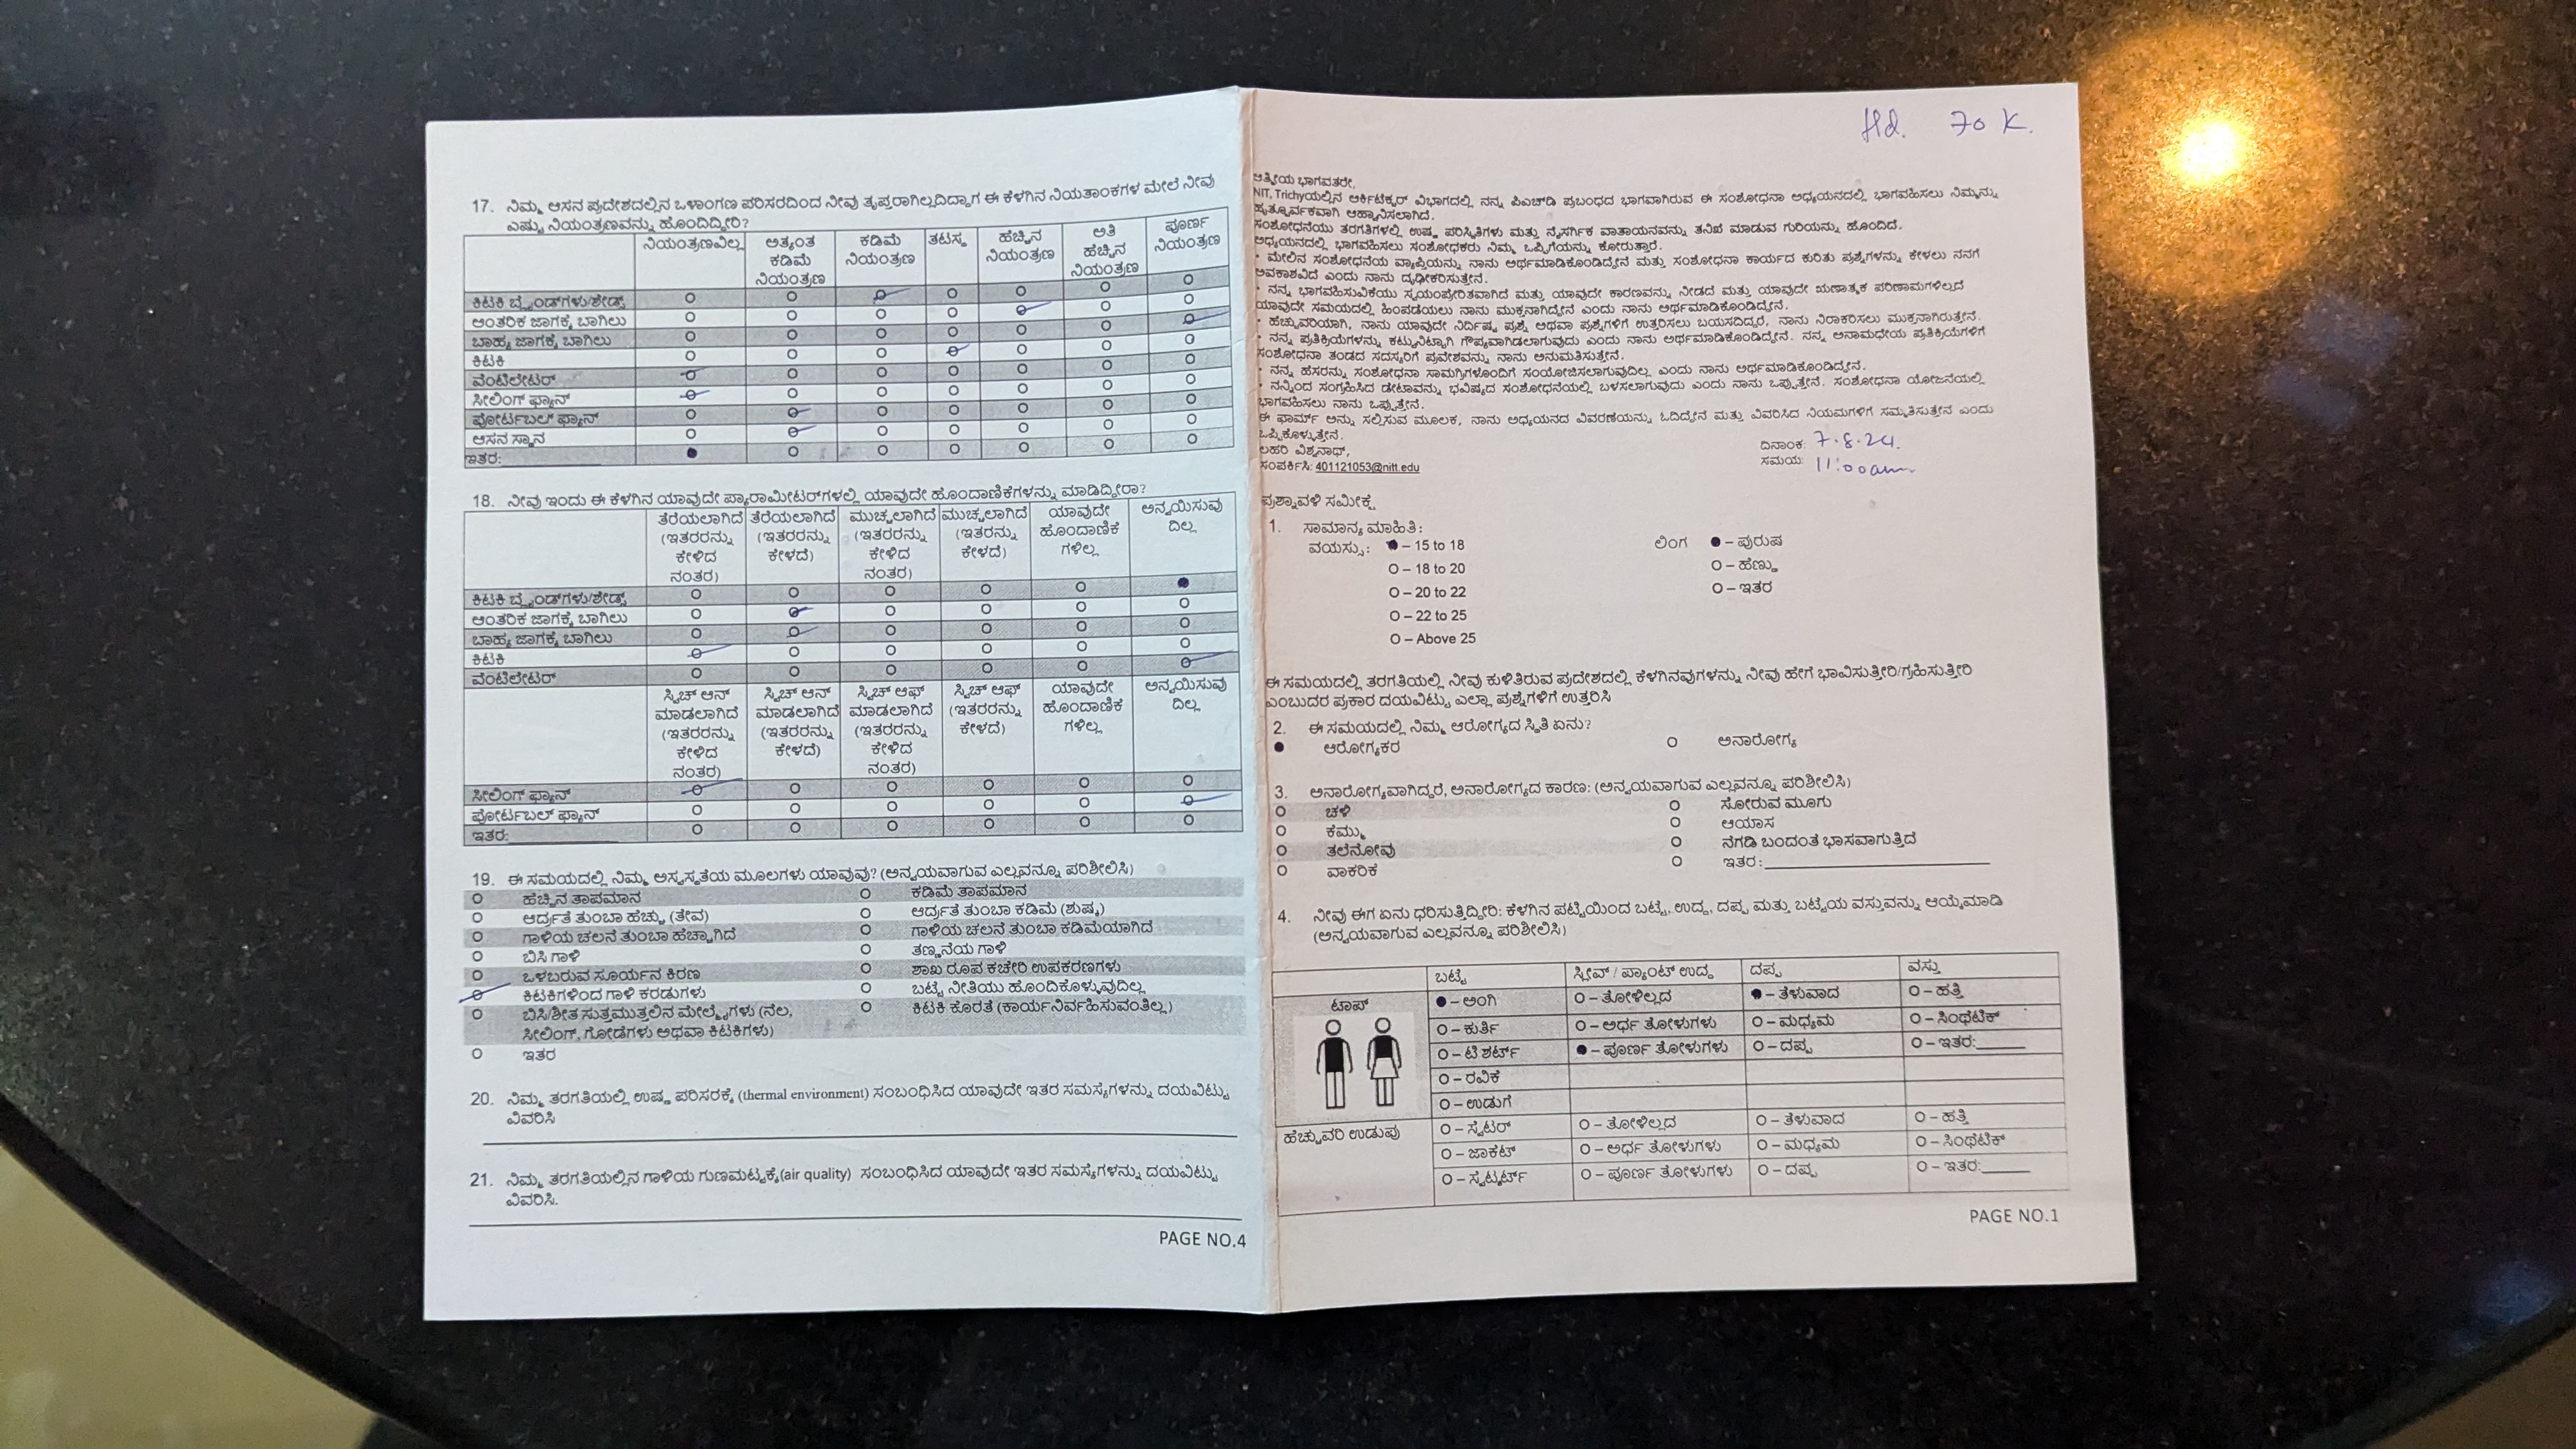 17. ನಿಮ್ಮ ಆಸನ ಪ್ರದೇಶದಲ್ಲಿನ ಒಳಾಂಗಣ ಪರಿಸರದಿಂದ ನೀವು ತೃಪ್ತರಾಗಿಲ್ಲದಿದ್ದಾಗ ಈ ಕೆಳಗಿನ ನಿಯತಾಂಕಗಳ ಮೇಲೆ ನೀವು
ಎಷ್ಟು ನಿಯಂತ್ರಣವನ್ನು ಹೊಂದಿದ್ದೀರಿ?
ನಿಯಂತ್ರಣವಿಲ್ಲ ಅತ್ಯಂತ ಕಡಿಮೆ ನಿಯಂತ್ರಣ ಕಡಿಮೆ ನಿಯಂತ್ರಣ ತಟಸ್ಥ ಹೆಚ್ಚಿನ ನಿಯಂತ್ರಣ ಅತಿ ಹೆಚ್ಚಿನ ನಿಯಂತ್ರಣ ಪೂರ್ಣ ನಿಯಂತ್ರಣ
ಕಿಟಕಿ ಬ್ಲೈಂಡ್‌ಗಳು/ಶೇಡ್ಸ್
ಆಂತರಿಕ ಜಾಗಕ್ಕೆ ಬಾಗಿಲು
ಬಾಹ್ಯ ಜಾಗಕ್ಕೆ ಬಾಗಿಲು
ಕಿಟಕಿ
ವೆಂಟಿಲೇಟರ್
ಸೀಲಿಂಗ್ ಫ್ಯಾನ್
ಪೋರ್ಟಬಲ್ ಫ್ಯಾನ್
ಆಸನ ಸ್ಥಾನ
ಇತರ:
18. ನೀವು ಇಂದು ಈ ಕೆಳಗಿನ ಯಾವುದೇ ಪ್ಯಾರಾಮೀಟರ್‌ಗಳಲ್ಲಿ ಯಾವುದೇ ಹೊಂದಾಣಿಕೆಗಳನ್ನು ಮಾಡಿದ್ದೀರಾ?
ತೆರೆಯಲಾಗಿದೆ (ಇತರರನ್ನು ಕೇಳಿದ ನಂತರ) ತೆರೆಯಲಾಗಿದೆ (ಇತರರನ್ನು ಕೇಳದೆ) ಮುಚ್ಚಲಾಗಿದೆ (ಇತರರನ್ನು ಕೇಳಿದ ನಂತರ) ಮುಚ್ಚಲಾಗಿದೆ (ಇತರರನ್ನು ಕೇಳದೆ) ಯಾವುದೇ ಹೊಂದಾಣಿಕೆ ಗಳಿಲ್ಲ ಅನ್ವಯಿಸುವು ದಿಲ್ಲ
ಕಿಟಕಿ ಬ್ಲೈಂಡ್‌ಗಳು/ಶೇಡ್ಸ್
ಆಂತರಿಕ ಜಾಗಕ್ಕೆ ಬಾಗಿಲು
ಬಾಹ್ಯ ಜಾಗಕ್ಕೆ ಬಾಗಿಲು
ಕಿಟಕಿ
ವೆಂಟಿಲೇಟರ್
ಸ್ವಿಚ್ ಆನ್ ಮಾಡಲಾಗಿದೆ (ಇತರರನ್ನು ಕೇಳಿದ ನಂತರ) ಸ್ವಿಚ್ ಆನ್ ಮಾಡಲಾಗಿದೆ (ಇತರರನ್ನು ಕೇಳದೆ) ಸ್ವಿಚ್ ಆಫ್ ಮಾಡಲಾಗಿದೆ (ಇತರರನ್ನು ಕೇಳಿದ ನಂತರ) ಸ್ವಿಚ್ ಆಫ್ (ಇತರರನ್ನು ಕೇಳದೆ) ಯಾವುದೇ ಹೊಂದಾಣಿಕೆ ಗಳಿಲ್ಲ ಅನ್ವಯಿಸುವು ದಿಲ್ಲ
ಸೀಲಿಂಗ್ ಫ್ಯಾನ್
ಪೋರ್ಟಬಲ್ ಫ್ಯಾನ್
ಇತರ:
19. ಈ ಸಮಯದಲ್ಲಿ ನಿಮ್ಮ ಅಸ್ವಸ್ಥತೆಯ ಮೂಲಗಳು ಯಾವುವು? (ಅನ್ವಯವಾಗುವ ಎಲ್ಲವನ್ನೂ ಪರಿಶೀಲಿಸಿ)
ಹೆಚ್ಚಿನ ತಾಪಮಾನ ಕಡಿಮೆ ತಾಪಮಾನ
ಆರ್ದ್ರತೆ ತುಂಬಾ ಹೆಚ್ಚು (ತೇವ) ಆರ್ದ್ರತೆ ತುಂಬಾ ಕಡಿಮೆ (ಶುಷ್ಕ)
ಗಾಳಿಯ ಚಲನೆ ತುಂಬಾ ಹೆಚ್ಚಾಗಿದೆ ಗಾಳಿಯ ಚಲನೆ ತುಂಬಾ ಕಡಿಮೆಯಾಗಿದೆ
ಬಿಸಿ ಗಾಳಿ ತಣ್ಣನೆಯ ಗಾಳಿ
ಒಳಬರುವ ಸೂರ್ಯನ ಕಿರಣ ಶಾಖ ರೂಪ ಕಚೇರಿ ಉಪಕರಣಗಳು
ಕಿಟಕಿಗಳಿಂದ ಗಾಳಿ ಕರಡುಗಳು ಬಟ್ಟೆ ನೀತಿಯು ಹೊಂದಿಕೊಳ್ಳುವುದಿಲ್ಲ
ಬಿಸಿ/ಶೀತ ಸುತ್ತಮುತ್ತಲಿನ ಮೇಲ್ಮೈಗಳು (ನೆಲ, ಕಿಟಕಿ ಕೊರತೆ (ಕಾರ್ಯನಿರ್ವಹಿಸುವಂತಿಲ್ಲ)
ಸೀಲಿಂಗ್, ಗೋಡೆಗಳು ಅಥವಾ ಕಿಟಕಿಗಳು)
ಇತರ
20. ನಿಮ್ಮ ತರಗತಿಯಲ್ಲಿ ಉಷ್ಣ ಪರಿಸರಕ್ಕೆ (thermal environment) ಸಂಬಂಧಿಸಿದ ಯಾವುದೇ ಇತರ ಸಮಸ್ಯೆಗಳನ್ನು ದಯವಿಟ್ಟು
ವಿವರಿಸಿ
21. ನಿಮ್ಮ ತರಗತಿಯಲ್ಲಿನ ಗಾಳಿಯ ಗುಣಮಟ್ಟಕ್ಕೆ(air quality) ಸಂಬಂಧಿಸಿದ ಯಾವುದೇ ಇತರ ಸಮಸ್ಯೆಗಳನ್ನು ದಯವಿಟ್ಟು
ವಿವರಿಸಿ.
PAGE NO.4
70 K.
ಆತ್ಮೀಯ ಭಾಗವತರೇ,
NIT, Trichyಯಲ್ಲಿನ ಆರ್ಕಿಟೆಕ್ಚರ್ ವಿಭಾಗದಲ್ಲಿ ನನ್ನ ಪಿಎಚ್‌ಡಿ ಪ್ರಬಂಧದ ಭಾಗವಾಗಿರುವ ಈ ಸಂಶೋಧನಾ ಅಧ್ಯಯನದಲ್ಲಿ ಭಾಗವಹಿಸಲು ನಿಮ್ಮನ್ನು
ಹೃತ್ಪೂರ್ವಕವಾಗಿ ಆಹ್ವಾನಿಸಲಾಗಿದೆ.
ಸಂಶೋಧನೆಯು ತರಗತಿಗಳಲ್ಲಿ ಉಷ್ಣ ಪರಿಸ್ಥಿತಿಗಳು ಮತ್ತು ನೈಸರ್ಗಿಕ ವಾತಾಯನವನ್ನು ತನಿಖೆ ಮಾಡುವ ಗುರಿಯನ್ನು ಹೊಂದಿದೆ.
ಅಧ್ಯಯನದಲ್ಲಿ ಭಾಗವಹಿಸಲು ಸಂಶೋಧಕರು ನಿಮ್ಮ ಒಪ್ಪಿಗೆಯನ್ನು ಕೋರುತ್ತಾರೆ.
• ಮೇಲಿನ ಸಂಶೋಧನೆಯ ವ್ಯಾಪ್ತಿಯನ್ನು ನಾನು ಅರ್ಥಮಾಡಿಕೊಂಡಿದ್ದೇನೆ ಮತ್ತು ಸಂಶೋಧನಾ ಕಾರ್ಯದ ಕುರಿತು ಪ್ರಶ್ನೆಗಳನ್ನು ಕೇಳಲು ನನಗೆ
ಅವಕಾಶವಿದೆ ಎಂದು ನಾನು ದೃಢೀಕರಿಸುತ್ತೇನೆ.
• ನನ್ನ ಭಾಗವಹಿಸುವಿಕೆಯು ಸ್ವಯಂಪ್ರೇರಿತವಾಗಿದೆ ಮತ್ತು ಯಾವುದೇ ಕಾರಣವನ್ನು ನೀಡದೆ ಮತ್ತು ಯಾವುದೇ ಋಣಾತ್ಮಕ ಪರಿಣಾಮಗಳಿಲ್ಲದೆ
ಯಾವುದೇ ಸಮಯದಲ್ಲಿ ಹಿಂಪಡೆಯಲು ನಾನು ಮುಕ್ತನಾಗಿದ್ದೇನೆ ಎಂದು ನಾನು ಅರ್ಥಮಾಡಿಕೊಂಡಿದ್ದೇನೆ.
• ಹೆಚ್ಚುವರಿಯಾಗಿ, ನಾನು ಯಾವುದೇ ನಿರ್ದಿಷ್ಟ ಪ್ರಶ್ನೆ ಅಥವಾ ಪ್ರಶ್ನೆಗಳಿಗೆ ಉತ್ತರಿಸಲು ಬಯಸದಿದ್ದರೆ, ನಾನು ನಿರಾಕರಿಸಲು ಮುಕ್ತನಾಗಿರುತ್ತೇನೆ.
• ನನ್ನ ಪ್ರತಿಕ್ರಿಯೆಗಳನ್ನು ಕಟ್ಟುನಿಟ್ಟಾಗಿ ಗೌಪ್ಯವಾಗಿಡಲಾಗುವುದು ಎಂದು ನಾನು ಅರ್ಥಮಾಡಿಕೊಂಡಿದ್ದೇನೆ. ನನ್ನ ಅನಾಮಧೇಯ ಪ್ರತಿಕ್ರಿಯೆಗಳಿಗೆ
ಸಂಶೋಧನಾ ತಂಡದ ಸದಸ್ಯರಿಗೆ ಪ್ರವೇಶವನ್ನು ನಾನು ಅನುಮತಿಸುತ್ತೇನೆ.
• ನನ್ನ ಹೆಸರನ್ನು ಸಂಶೋಧನಾ ಸಾಮಗ್ರಿಗಳೊಂದಿಗೆ ಸಂಯೋಜಿಸಲಾಗುವುದಿಲ್ಲ ಎಂದು ನಾನು ಅರ್ಥಮಾಡಿಕೊಂಡಿದ್ದೇನೆ.
• ನನ್ನಿಂದ ಸಂಗ್ರಹಿಸಿದ ಡೇಟಾವನ್ನು ಭವಿಷ್ಯದ ಸಂಶೋಧನೆಯಲ್ಲಿ ಬಳಸಲಾಗುವುದು ಎಂದು ನಾನು ಒಪ್ಪುತ್ತೇನೆ. ಸಂಶೋಧನಾ ಯೋಜನೆಯಲ್ಲಿ
ಭಾಗವಹಿಸಲು ನಾನು ಒಪ್ಪುತ್ತೇನೆ.
ಈ ಫಾರ್ಮ್ ಅನ್ನು ಸಲ್ಲಿಸುವ ಮೂಲಕ, ನಾನು ಅಧ್ಯಯನದ ವಿವರಣೆಯನ್ನು ಓದಿದ್ದೇನೆ ಮತ್ತು ವಿವರಿಸಿದ ನಿಯಮಗಳಿಗೆ ಸಮ್ಮತಿಸುತ್ತೇನೆ ಎಂದು
ಒಪ್ಪಿಕೊಳ್ಳುತ್ತೇನೆ.
ಲಹರಿ ವಿಶ್ವನಾಥ್,
ಸಂಪರ್ಕಿಸಿ: 401121053@nitt.edu
ದಿನಾಂಕ: 7.8.24.
ಸಮಯ: 11:00am
ಪ್ರಶ್ನಾವಳಿ ಸಮೀಕ್ಷೆ
1. ಸಾಮಾನ್ಯ ಮಾಹಿತಿ:
ವಯಸ್ಸು: – 15 to 18 ಲಿಂಗ – ಪುರುಷ
O – 18 to 20 O – ಹೆಣ್ಣು
O – 20 to 22 O – ಇತರ
O – 22 to 25
O – Above 25
ಈ ಸಮಯದಲ್ಲಿ ತರಗತಿಯಲ್ಲಿ ನೀವು ಕುಳಿತಿರುವ ಪ್ರದೇಶದಲ್ಲಿ ಕೆಳಗಿನವುಗಳನ್ನು ನೀವು ಹೇಗೆ ಭಾವಿಸುತ್ತೀರಿ/ಗ್ರಹಿಸುತ್ತೀರಿ
ಎಂಬುದರ ಪ್ರಕಾರ ದಯವಿಟ್ಟು ಎಲ್ಲಾ ಪ್ರಶ್ನೆಗಳಿಗೆ ಉತ್ತರಿಸಿ
2. ಈ ಸಮಯದಲ್ಲಿ ನಿಮ್ಮ ಆರೋಗ್ಯದ ಸ್ಥಿತಿ ಏನು?
ಆರೋಗ್ಯಕರ ಅನಾರೋಗ್ಯ
3. ಅನಾರೋಗ್ಯವಾಗಿದ್ದರೆ, ಅನಾರೋಗ್ಯದ ಕಾರಣ: (ಅನ್ವಯವಾಗುವ ಎಲ್ಲವನ್ನೂ ಪರಿಶೀಲಿಸಿ)
ಚಳಿ ಸೋರುವ ಮೂಗು
ಕೆಮ್ಮು ಆಯಾಸ
ತಲೆನೋವು ನೆಗಡಿ ಬಂದಂತೆ ಭಾಸವಾಗುತ್ತಿದೆ
ವಾಕರಿಕೆ ಇತರ:
4. ನೀವು ಈಗ ಏನು ಧರಿಸುತ್ತಿದ್ದೀರಿ: ಕೆಳಗಿನ ಪಟ್ಟಿಯಿಂದ ಬಟ್ಟೆ, ಉದ್ದ, ದಪ್ಪ ಮತ್ತು ಬಟ್ಟೆಯ ವಸ್ತುವನ್ನು ಆಯ್ಕೆಮಾಡಿ
(ಅನ್ವಯವಾಗುವ ಎಲ್ಲವನ್ನೂ ಪರಿಶೀಲಿಸಿ)
ಬಟ್ಟೆ ಸ್ಲೀವ್ / ಪ್ಯಾಂಟ್ ಉದ್ದ ದಪ್ಪ ವಸ್ತು
ಟಾಪ್ – ಅಂಗಿ O – ತೋಳಿಲ್ಲದ – ತೆಳುವಾದ O – ಹತ್ತಿ
O – ಕುರ್ತಿ O – ಅರ್ಧ ತೋಳುಗಳು O – ಮಧ್ಯಮ O – ಸಿಂಥೆಟಿಕ್
O – ಟಿ ಶರ್ಟ್ – ಪೂರ್ಣ ತೋಳುಗಳು O – ದಪ್ಪ O – ಇತರ:
O – ರವಿಕೆ
O – ಉಡುಗೆ
ಹೆಚ್ಚುವರಿ ಉಡುಪು O – ಸ್ವೆಟರ್ O – ತೋಳಿಲ್ಲದ O – ತೆಳುವಾದ O – ಹತ್ತಿ
O – ಜಾಕೆಟ್ O – ಅರ್ಧ ತೋಳುಗಳು O – ಮಧ್ಯಮ O – ಸಿಂಥೆಟಿಕ್
O – ಪೂರ್ಣ ತೋಳುಗಳು O – ದಪ್ಪ O – ಇತರ:
PAGE NO.1